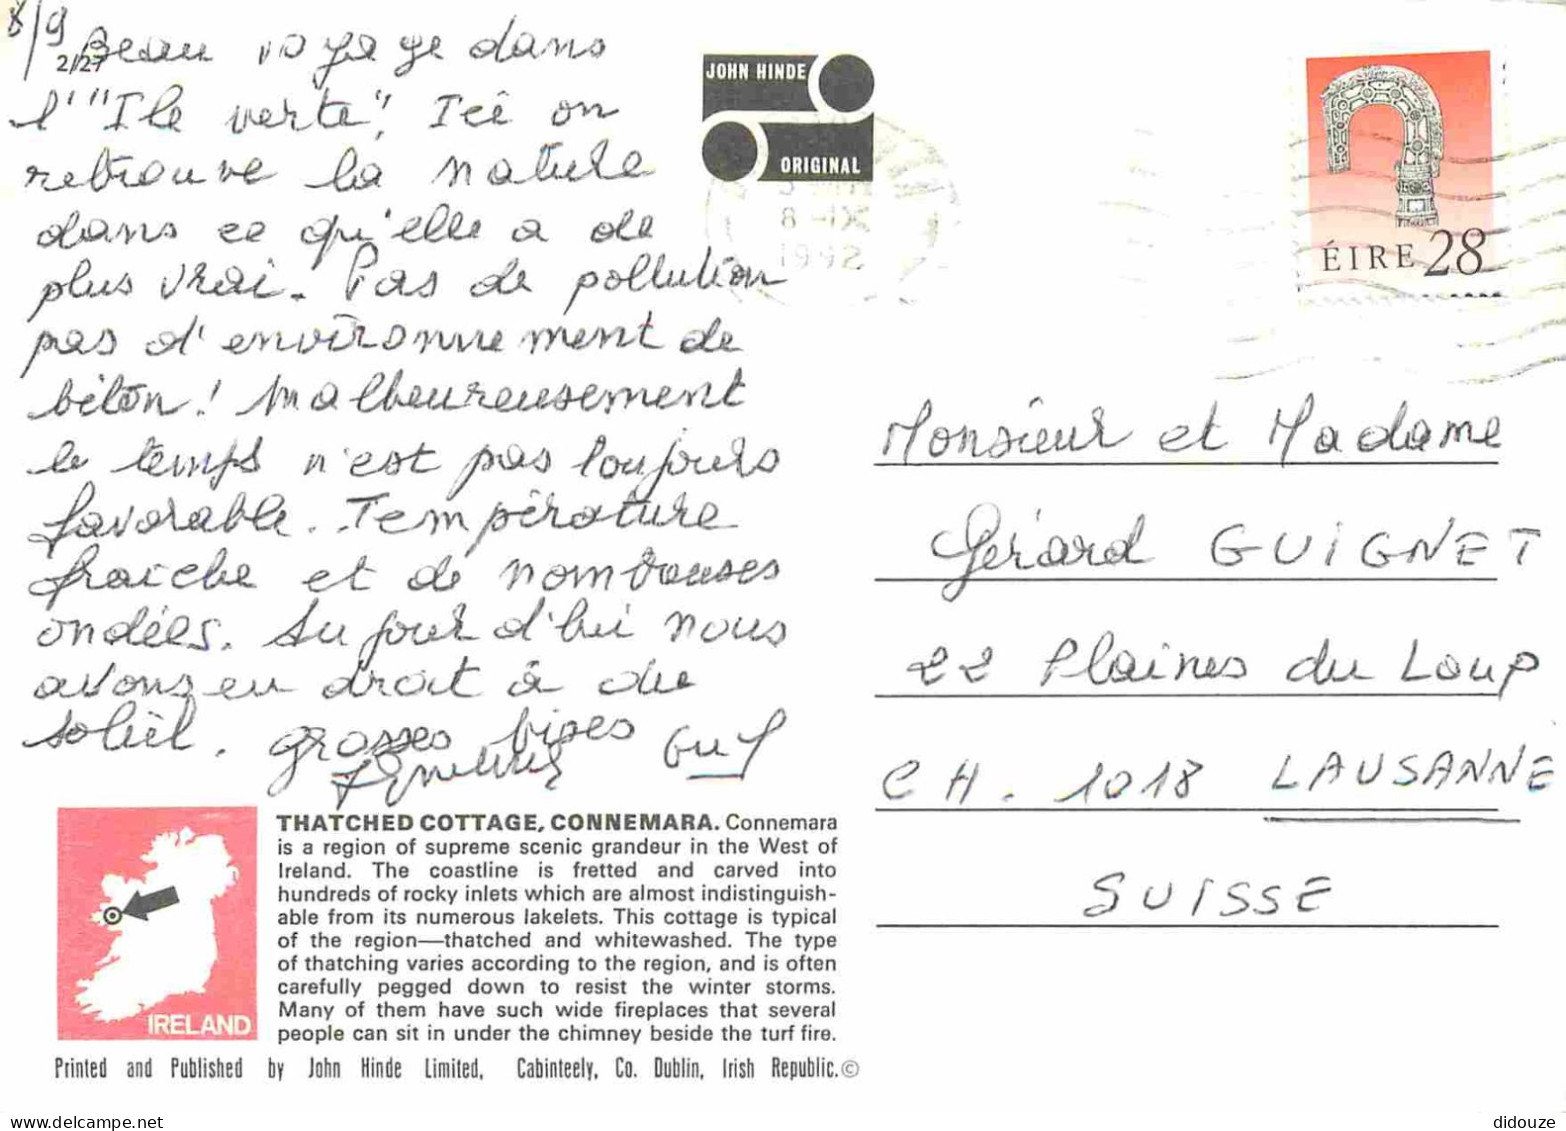 8/9
2/27
Beau voyage dans
l'"Ile verte". Ici on
retrouve la nature
dans ce qu'elle a de
plus vrai. Pas de pollution
pas d'environnement de
béton! Malheureusement
le temps n'est pas toujours
favorable. Température
fraiche et de nombreuses
ondées. Aujourd'hui nous
avons eu droit à du
soleil. Grosses bises
Guy
JOHN HINDE
ORIGINAL
8-IX
1992
ÉIRE 28
Monsieur et Madame
Gérard GUIGNET
22 Plaines du Loup
CH. 1018 LAUSANNE
SUISSE
IRELAND
THATCHED COTTAGE, CONNEMARA. Connemara
is a region of supreme scenic grandeur in the West of
Ireland. The coastline is fretted and carved into
hundreds of rocky inlets which are almost indistinguish-
able from its numerous lakelets. This cottage is typical
of the region—thatched and whitewashed. The type
of thatching varies according to the region, and is often
carefully pegged down to resist the winter storms.
Many of them have such wide fireplaces that several
people can sit in under the chimney beside the turf fire.
Printed and Published by John Hinde Limited, Cabinteely, Co. Dublin, Irish Republic.©
delcampe.net
didouze